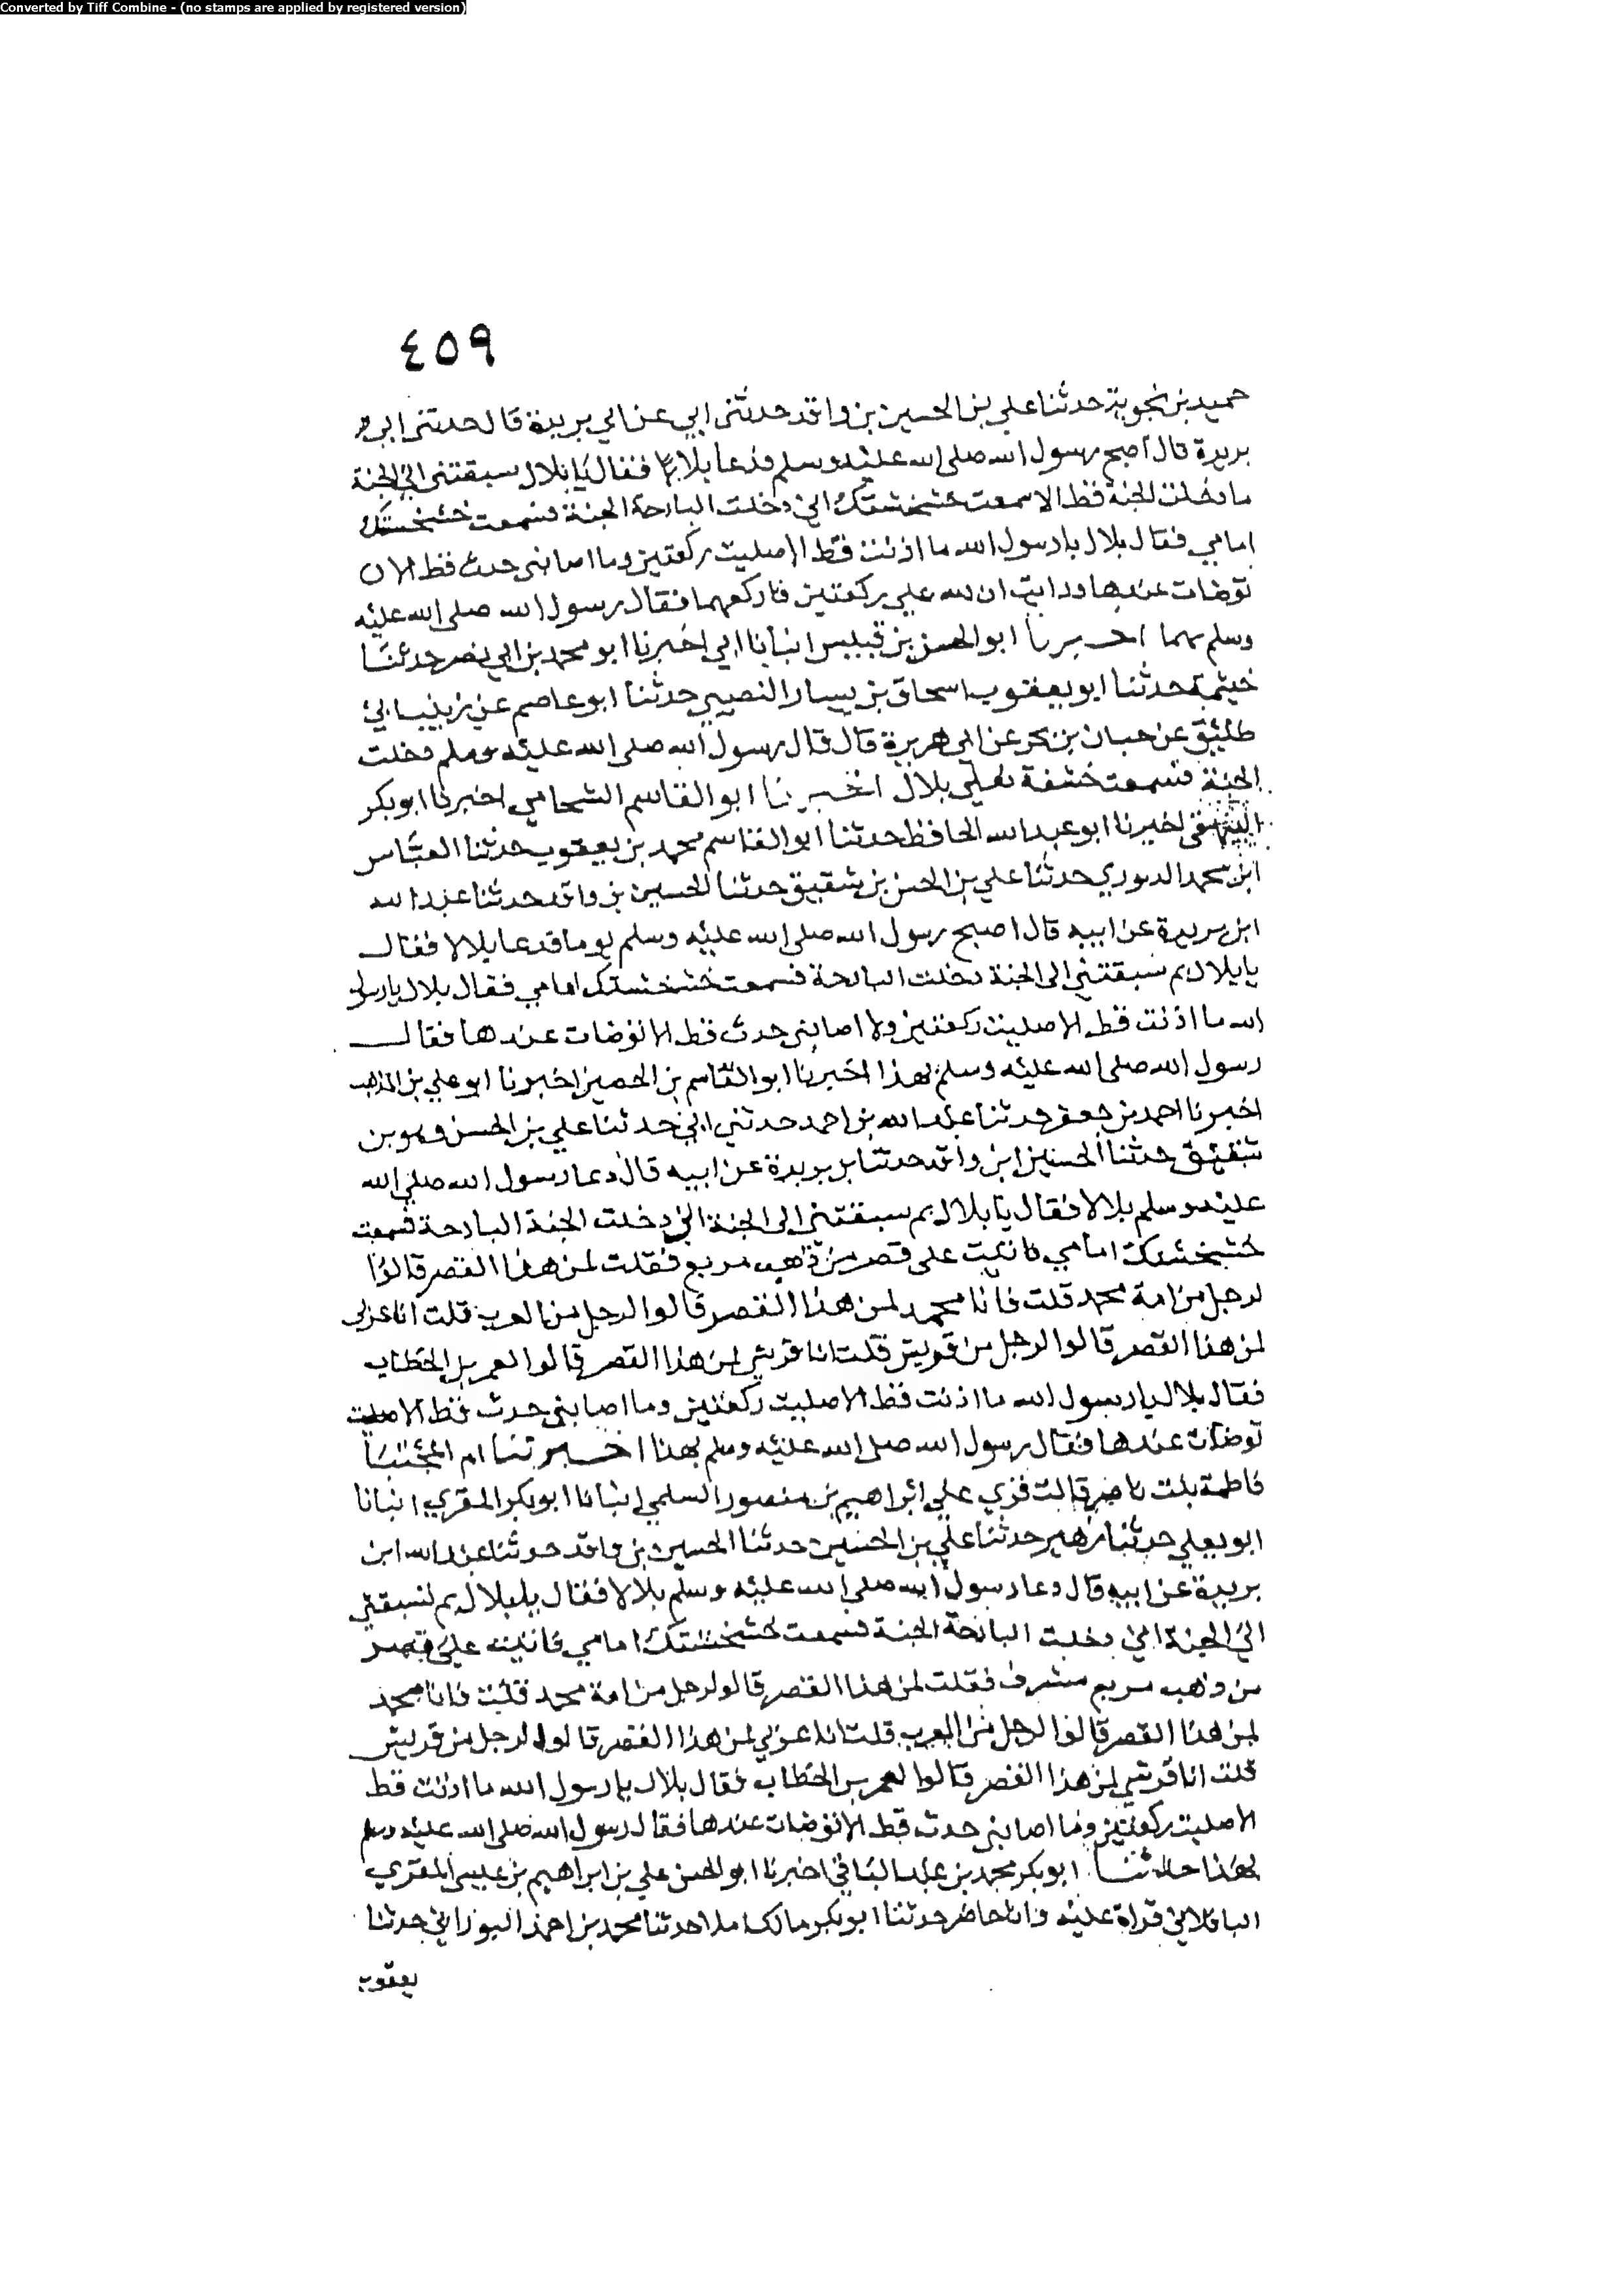 Converted by Tiff Combine - (no stamps are applied by registered version)
٤٥٩
حميد بن نجوية حدثنا علي بن الحسين بن واقد حدثني ابي عن ابي بريدة قال حدثني ابي
بريدة قال اصبح رسول الله صلى الله عليه وسلم فدعا بلالا فقال يا بلال سبقتني الى الجنة
ما دخلت الجنة قط الا سمعت خشخشتك اني دخلت البارحة الجنة فسمعت خشخشتك
امامي فقال بلال يا رسول الله ما اذنت قط الا صليت ركعتين وما اصابني حدث قط الا ان
توضات عندها ورايت ان لله علي ركعتين فاركعهما فقال رسول الله صلى الله عليه
وسلم بهما اخبرنا ابو الحسن بن قبيس انبانا ابي اخبرنا ابو محمد بن ابي نصر حدثنا
خيثمة حدثنا ابو يعقوب اسحاق بن يسار النصيبي حدثنا ابو عاصم عن زينب ابي
طليق عن حبان بن بحر عن ابي هريرة قال قال رسول الله صلى الله عليه وسلم دخلت
الجنة فسمعت خشفة نعلي بلال اخبرنا ابو القاسم الشحامي اخبرنا ابو بكر
البيهقي اخبرنا ابو عبد الله الحافظ حدثنا ابو القاسم محمد بن يعقوب حدثنا العباس
ابن محمد الدوري حدثنا علي بن الحسن بن شقيق حدثنا الحسين بن واقد حدثنا عبد الله
ابن بريدة عن ابيه قال اصبح رسول الله صلى الله عليه وسلم يوما قدعا بلالا فقال
يا بلال بم سبقتني الى الجنة دخلت البارحة فسمعت خشخشتك امامي فقال بلال يا رسول
الله ما اذنت قط الا صليت ركعتين ولا اصابني حدث قط الا توضات عندها فقال
رسول الله صلى الله عليه وسلم بهذا اخبرنا ابو القاسم بن الحصين اخبرنا ابو علي بن المذهب
اخبرنا احمد بن جعفر حدثنا عبد الله بن احمد حدثني ابي حدثنا علي بن الحسن وهو بن
شقيق حدثنا الحسين ابن واقد حدثنا بن بريدة عن ابيه قال دعا رسول الله صلى الله
عليه وسلم بلالا فقال يا بلال بم سبقتني الى الجنة اني دخلت الجنة البارحة فسمعت
خشخشتك امامي فاتيت على قصر من ذهب مربع فقلت لمن هذا القصر قالوا
لرجل من امة محمد قلت فانا محمد لمن هذا القصر قالوا لرجل من العرب قلت انا عربي
لمن هذا القصر قالوا لرجل من قريش قلت انا قرشي لمن هذا القصر قالوا لعمر بن الخطاب
فقال بلال يا رسول الله ما اذنت قط الا صليت ركعتين وما اصابني حدث قط الا صليت
توضات عندها فقال رسول الله صلى الله عليه وسلم بهذا اخبرتنا ام المجتبى
فاطمة بنت ناصر قالت قري علي ابراهيم بن منصور السلمي انبانا ابو بكر المقري انبانا
ابو يعلي حدثنا زهير حدثنا علي بن الحسين حدثنا الحسين بن واقد حدثنا عبد الله ابن
بريدة عن ابيه قال دعا رسول الله صلى الله عليه وسلم بلالا فقال يا بلال بم تسبقني
الى الجنة اني دخلت البارحة الجنة فسمعت خشخشتك امامي فاتيت على قصر
من ذهب مربع مشرف فقلت لمن هذا القصر قالو لرجل من امة محمد قلت فانا محمد
لمن هذا القصر قالوا لرجل من العرب قلت انا عربي لمن هذا القصر قالوا لرجل من قريش
قلت انا قرشي لمن هذا القصر قالوا لعمر بن الخطاب فقال بلال يا رسول الله ما اذنت قط
الا صليت ركعتين وما اصابني حدث قط الا توضات عندها فقال رسول الله صلى الله عليه وسلم
بهذا حدثنا ابو بكر محمد بن عبد الباقي اخبرنا ابو الحسن علي بن ابراهيم بن عيسى المقري
الباقلاني قراة عليه وانا حاضر حدثنا ابو بكر مالك املا حدثنا محمد بن احمد البوراني حدثنا
يعقوب